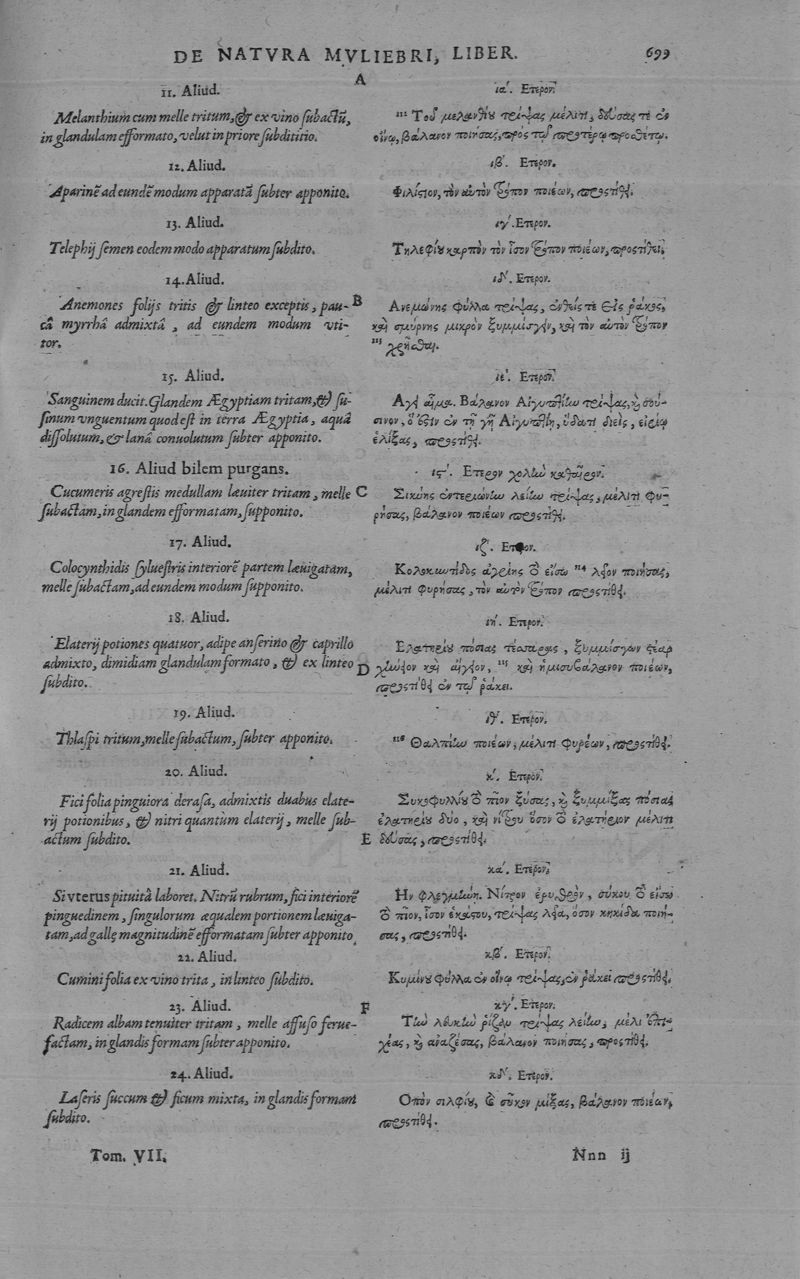 DE NATVRA MVLIEBRI, LIBER. 699
A
11. Aliud.
Melanthium cum melle tritum, & ex vino subactũ,
in glandulam efformato, velut in priore subdititio.
12. Aliud.
Aparinẽ ad eundẽ modum apparatã subter apponito.
13. Aliud.
Telephij semen eodem modo apparatum subdito.
14. Aliud.
Anemones folijs tritis & linteo exceptis, pau-
câ myrrhâ admixtâ, ad eundem modum vti-
tor.
15. Aliud.
Sanguinem ducit. Glandem Ægyptiam tritam, & su-
sinum vnguentum quod est in terra Ægyptia, aquâ
dissolutum, & lanâ conuolutum subter apponito.
16. Aliud bilem purgans.
Cucumeris agrestis medullam læuiter tritam, melle
subactam, in glandem efformatam, supponito.
17. Aliud.
Colocynthidis syluestris interiorẽ partem læuigatam,
melle subactam, ad eundem modum supponito.
18. Aliud.
Elaterij potiones quatuor, adipe anserino & caprillo
admixto, dimidiam glandulam formato, & ex linteo
subdito.
19. Aliud.
Thlaspi tritum, melle subactum, subter apponito.
20. Aliud.
Fici folia pinguiora derasa, admixtis duabus elate-
rij potionibus, & nitri quantum elaterij, melle sub-
actum subdito.
21. Aliud.
Si vterus pituitâ laboret. Nitrũ rubrum, fici interiorẽ
pinguedinem, singulorum æqualem portionem læuiga-
tam, ad gallę magnitudinẽ efformatam subter apponito
22. Aliud.
Cumini folia ex vino trita, in linteo subdito.
23. Aliud.
Radicem albam tenuiter tritam, melle affuso ferue-
factam, in glandis formam subter apponito.
24. Aliud.
Laseris succum & ficum mixta, in glandis formam
subdito.
B
C
D
E
F
ια΄. Ἕτερον.
112 Τοῦ μελανθίου τρίψας μέλιτι, δεύσας τε ἐν
οἴνῳ, βάλανον ποιήσας, πρὸς τῷ προτέρῳ προσθέτῳ.
ιβ΄. Ἕτερον.
Φιλίστιον, τὸν αὐτὸν τρόπον ποιέων, προστίθει.
ιγ΄. Ἕτερον.
Τηλεφίου καρπὸν τὸν ἴσον τρόπον ποιέων, προστίθει.
ιδ΄. Ἕτερον.
Ἀνεμώνης φύλλα τρίψας, ἐνθείς τε εἰς ῥάκος,
καὶ σμύρνης μικρὸν ξυμμίσγειν, καὶ τὸν αὐτὸν τρόπον
113 χρῆσθαι.
ιε΄. Ἕτερον.
Ἄγει αἷμα. Βάλανον Αἰγυπτίην τρίψας, καὶ σού-
σινον, ὅ ἐστιν ἐν τῇ γῇ Αἰγυπτίῃ, ὕδατι διεὶς, εἰρίῳ
ἑλίξας, προστίθει.
ις΄. Ἕτερον χολὴν καθαῖρον.
Σικύης ἐντεριώνην λείην τρίψας, μέλιτι φυ-
ρήσας, βάλανον ποιέων προστίθει.
ιζ΄. Ἕτερον.
Κολοκυντίδος ἀγρίης τὸ εἴσω 114 λεῖον ποιήσας,
μέλιτι φυρήσας, τὸν αὐτὸν τρόπον προστίθει.
ιη΄. Ἕτερον.
Ἐλατηρίου πόσιας τέσσαρας, ξυμμίσγων στέαρ
χήνειον καὶ αἴγειον, 115 καὶ ἡμισυβάλανον ποιέων,
προστίθει ἐν τῷ ῥάκει.
ιθ΄. Ἕτερον.
116 Θαλπίην ποιέων, μέλιτι φυρέων, προστίθει.
κ΄. Ἕτερον.
Συκοφυλλίου τὸ πῖον ξύσας, καὶ ξυμμίξας πόσιας
ἐλατηρίου δύο, καὶ νίτρου ὅσον τὸ ἐλατήριον μέλιτι
δεύσας, προστίθει.
κα΄. Ἕτερον.
Ἢν φλεγματώδη. Νίτρον ἐρυθρὸν, σύκου τὸ εἴσω
τὸ πῖον, ἴσον ἑκάστου, τρίψας λεῖα, ὅσον κηκίδα ποιή-
σας, προστίθει.
κβ΄. Ἕτερον.
Κυμίνου φύλλα ἐν οἴνῳ τρίψας, ἐν ῥάκει προστίθει.
κγ΄. Ἕτερον.
Τὴν λευκὴν ῥίζαν τρίψας λείην, μέλι ἐπι-
χέας, καὶ ἀναζέσας, βάλανον ποιήσας, προστίθει.
κδ΄. Ἕτερον.
Ὀπὸν σιλφίου, καὶ σῦκον μίξας, βάλανον ποιέων,
προστίθει.
Tom. VII. Nnn ij